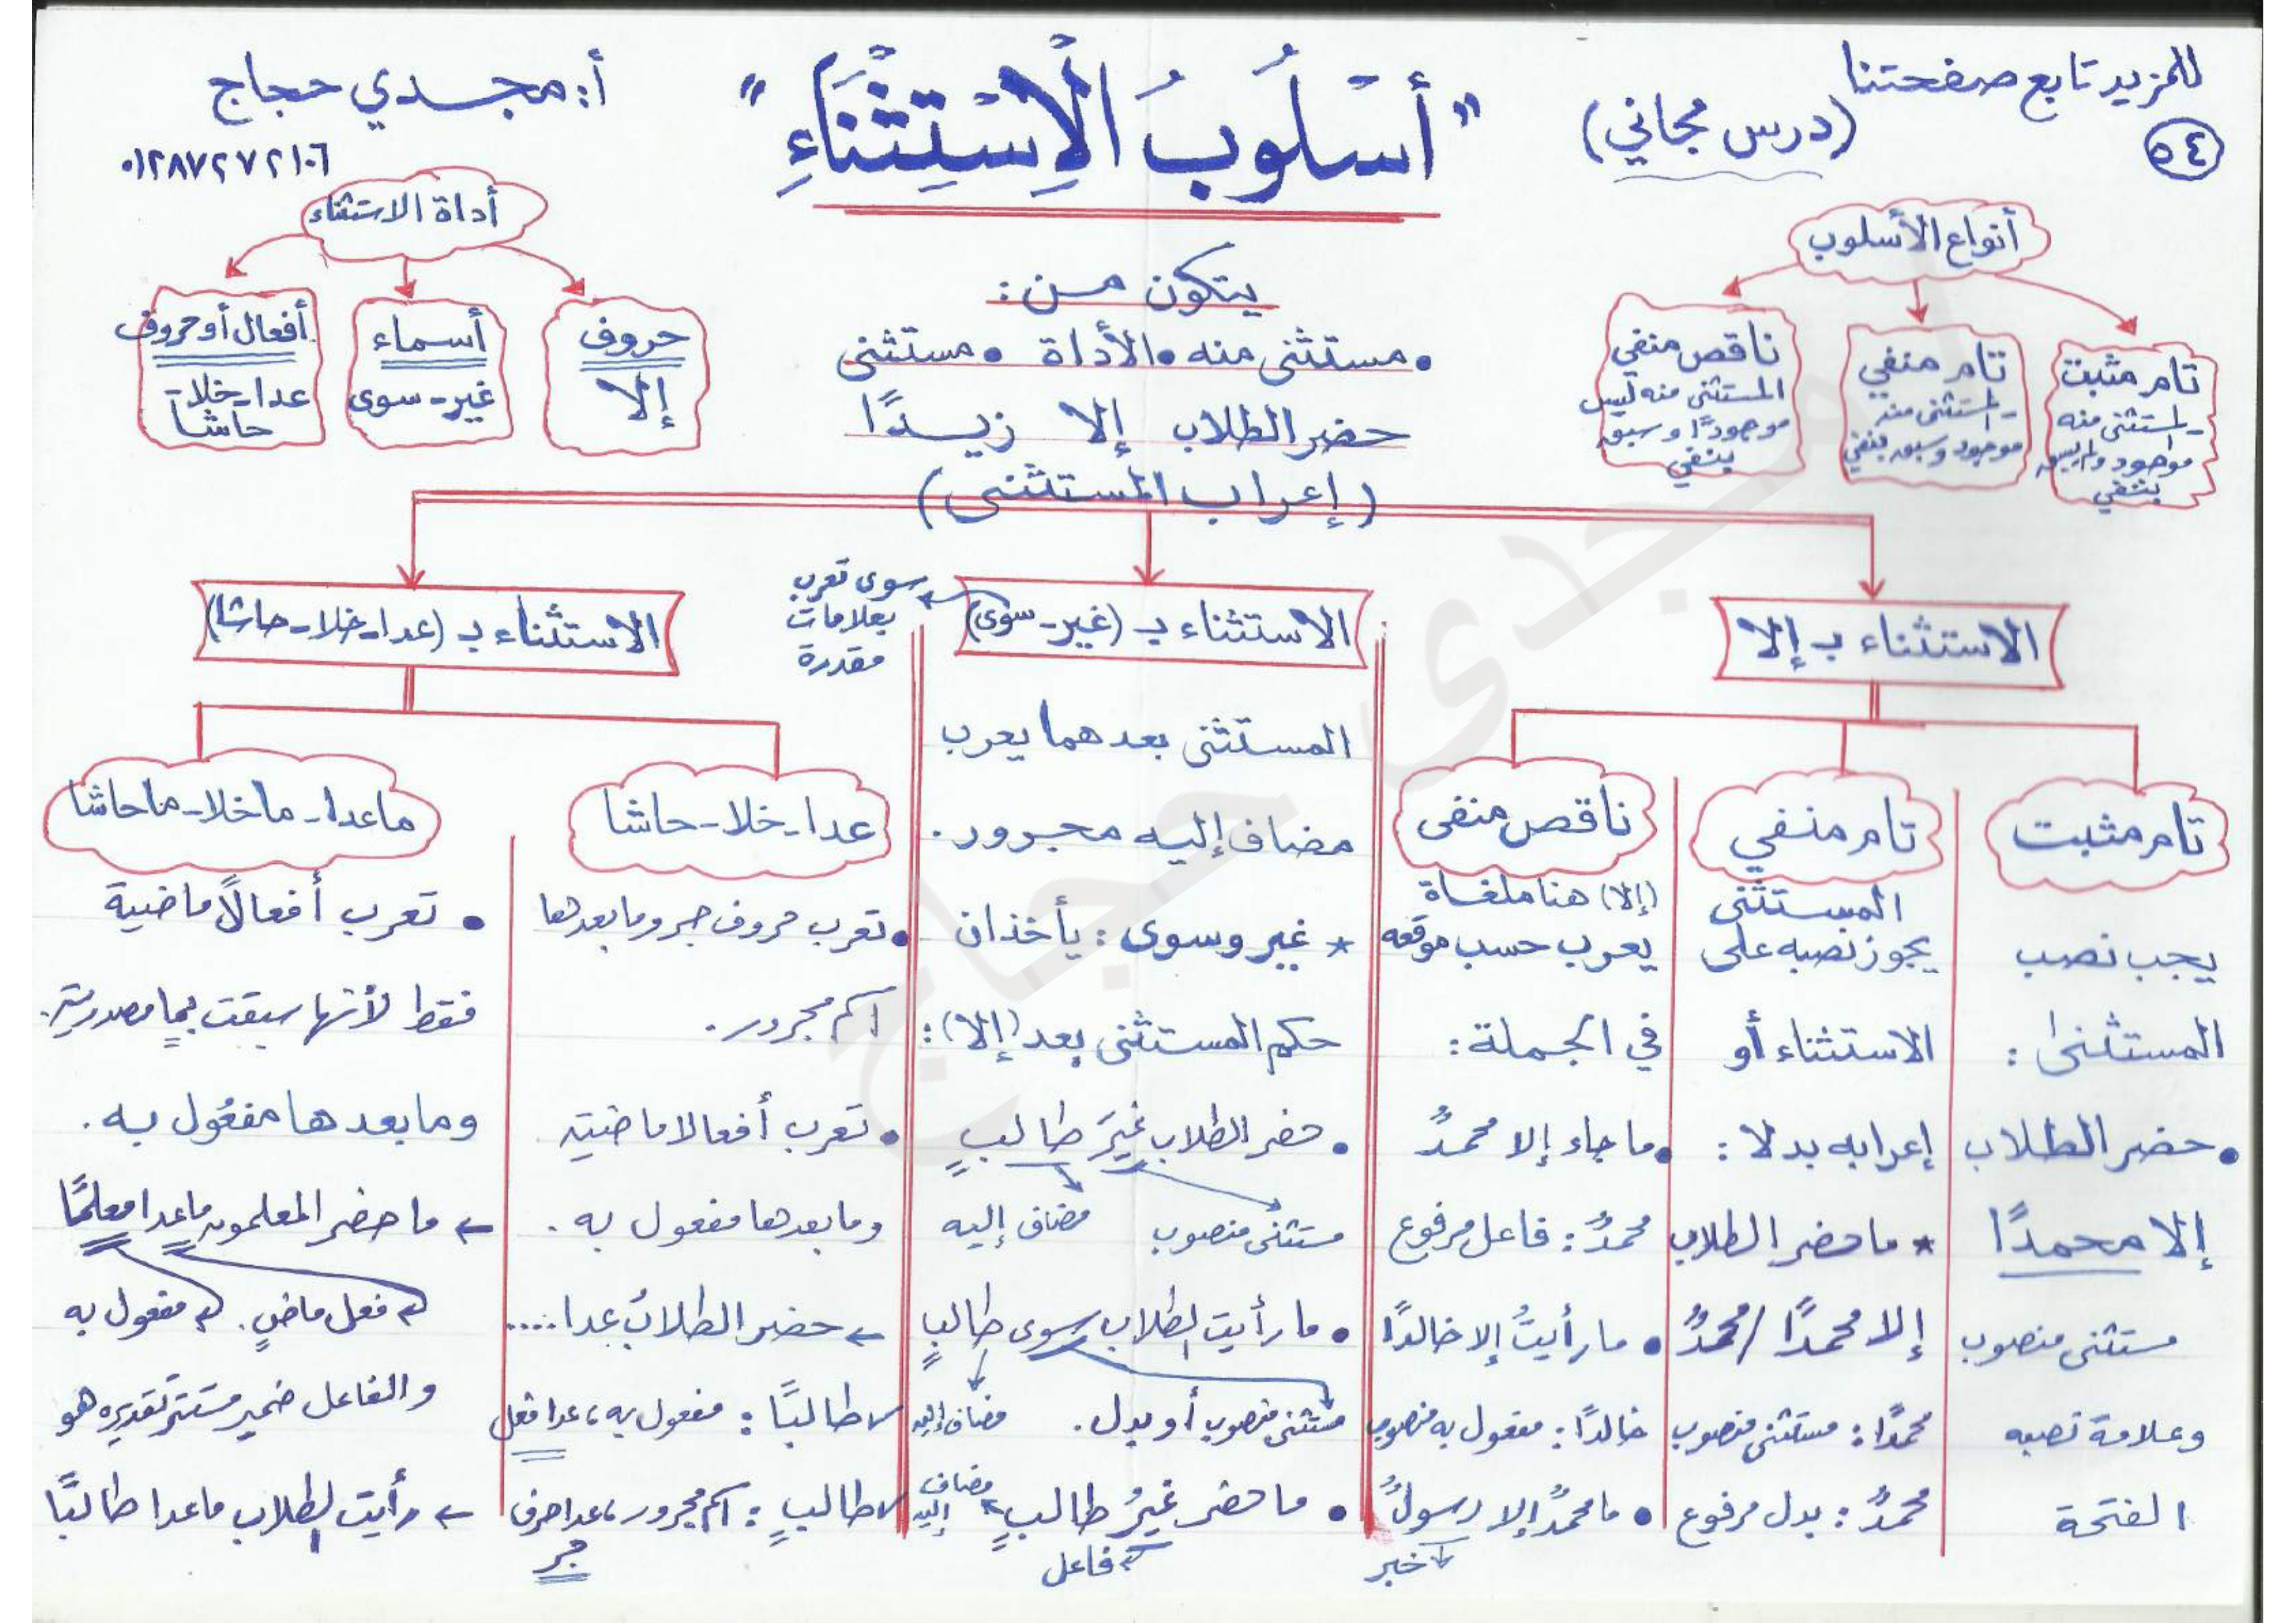 للمزيد تابع صفحتنا
٥٤
(درس مجاني)
"أسْلُوبُ الْاِسْتِثْنَاءِ"
أ: مجدي حجاج
٠١٢٨٧٢٧٢١٠٦
أنواع الأسلوب
تام مثبت
- المستثنى منه
موجود ولم يسبق
بنفي
تام منفي
- المستثنى منه
موجود وسبق بنفي
ناقص منفي
المستثنى منه ليس
موجودًا وسبق
بنفي
يتكون من:
• مستثنى منه • الأداة • مستثنى
حضر الطلاب إلا زيدًا
أداة الاستثناء
حروف
إلا
أسماء
غير - سوى
أفعال أو حروف
عدا - خلا -
حاشا
(إعراب المستثنى)
الاستثناء بـ إلا
تام مثبت
يجب نصب
المستثنى:
• حضر الطلاب
إلا محمدًا
مستثنى منصوب
وعلامة نصبه
الفتحة
تام منفي
المستثنى
يجوز نصبه على
الاستثناء أو
إعرابه بدلا:
* ما حضر الطلاب
إلا محمدًا / محمدٌ
محمدًا: مستثنى منصوب
محمدٌ: بدل مرفوع
ناقص منفى
(إلا) هنا ملغاة
يعرب حسب موقعه
في الجملة:
• ما جاء إلا محمدٌ
محمدٌ: فاعل مرفوع
• ما رأيتُ إلا خالدًا
خالدًا: مفعول به منصوب
• ما محمدٌ إلا رسولٌ
خبر
الاستثناء بـ (غير - سوى)
سوى تعرب
بعلامات
مقدرة
المستثنى بعدهما يعرب
مضاف إليه مجرور.
* غير وسوى: يأخذان
حكم المستثنى بعد (إلا):
• حضر الطلاب غيرَ طالبٍ
مستثنى منصوب مضاف إليه
• ما رأيت الطلاب سوى طالبٍ
مستثنى منصوب أو بدل. مضاف إليه
• ما حضر غيرُ طالبٍ مضاف إليه
فاعل
الاستثناء بـ (عدا - خلا - حاشا)
عدا - خلا - حاشا
• تعرب حروف جر وما بعدها
اسم مجرور.
• تعرب أفعالا ماضية
وما بعدها مفعول به.
← حضر الطلابُ عدا....
طالبًا: مفعول به، عدا فعل
طالبٍ: اسم مجرور، عدا حرف
جر
ماعدا - ماخلا - ماحاشا
• تعرب أفعالًا ماضية
فقط لأنها سبقت بما مصدرية.
وما بعدها مفعول به.
← ما حضر المعلمون ماعدا معلمًا
فعل ماضٍ. مفعول به
والفاعل ضمير مستتر تقديره هو
← رأيت الطلاب ماعدا طالبًا
مجدى حجاج